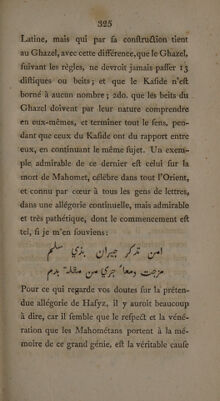 325
Latine, mais qui par sa construction tient
au Ghazel, avec cette différence, que le Ghazel,
suivant les règles, ne devroit jamais passer 13
distiques ou beits; et que le Kaside n'est
borné à aucun nombre; 2do. que les beits du
Ghazel doivent par leur nature comprendre
en eux-mêmes, et terminer tout le sens, pen-
dant que ceux du Kaside ont du rapport entre
eux, en continuant le même sujet. Un exem-
ple admirable de ce dernier est celui sur la
mort de Mahomet, célèbre dans tout l'Orient,
et connu par cœur à tous les gens de lettres,
dans une allégorie continuelle, mais admirable
et très pathétique, dont le commencement est
tel, si je m'en souviens:
امن تذكر جيران بذي سلم
مزجت دمعا جري من مقلة بدم
Pour ce qui regarde vos doutes sur la préten-
due allégorie de Hafyz, il y auroit beaucoup
à dire, car il semble que le respect et la véné-
ration que les Mahométans portent à la mé-
moire de ce grand génie, est la véritable cause